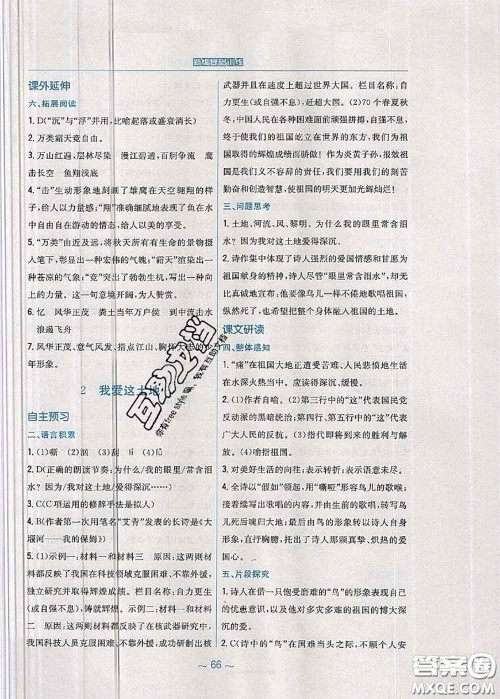 新编基础训练
课外延伸
六、拓展阅读
1. D(“沉”与“浮”并用,比喻起落或盛衰消长)
2. 万类霜天竞自由。
3. 万山红遍,层林尽染 漫江碧透,百舸争流 鹰
击长空 鱼翔浅底
4. “击”生动形象地刻画了雄鹰在天空翱翔的样
子,给人以力量感;“翔”准确细腻地表现了鱼在水
中自由自在游动的情态,给人以美的享受。
5. “万类”由近及远,将秋天所有生命的景物摄
人笔下,形成一种宏伟的气魄;“霜天”渲染出一
种苍凉的气象;“竞”突出了勃勃生机,写出一种向
上的力量。这一句意境开阔,令人赞赏。
6. 忆 风华正茂 粪土当年万户侯 到中流击水
浪遏飞舟
7. 风华正茂、意气风发、指点江山、胸怀天下的青
年形象。
2 我爱这土地
自主预习
二、语言积累
1. (1)嘶 (2)涌 (3)刮
2. D(正确的朗读节奏:为什么/我的眼里/常含泪
水? 因为/我对这土地/爱得深沉……)
3. C(C项运用的修辞手法是拟人)
4. B(作者第一次用笔名“艾青”发表的长诗是《大
堰河——我的保姆》)
5. (1)示例一:材料一和材料三 原因:这两则材
料都反映了我国在科技领域克服困难,不靠外援,
独立研究并取得辉煌成绩。栏目名称:自力更生
(或自强不息),铸就辉煌。示例二:材料一和材料
二 原因:这两则材料都反映了在核武器研究中,
我国科技人员克服困难,不靠外援,成功研制出核
武器并且在速度上超过世界大国。栏目名称:自力
更生(或自强不息),赶超大国。(2)70个春夏秋
冬,中国人民在各种困难面前顽强拼搏,自强不息,
终于使我们的祖国屹立在世界的东方,我们为祖国
取得的辉煌成绩而骄傲! 作为炎黄子孙,报效祖国
是我们义不容辞的责任,我们要以我们的刻苦
勤奋和创造智慧,使祖国的明天更加光辉灿烂!
三、问题思考
1. 土地、河流、风、黎明。为什么我的眼里常含泪
水? 因为我对这土地爱得深沉。
2. 诗作集中体现了诗人强烈的爱国情感和甘愿为
祖国献身的精神,诗人因祖国“眼里常含泪水”,却
无比真诚地宣布:他要像鸟儿一样不倦地歌唱祖国,
死后也要把整个身体融入祖国的土地。
课文研读
四、整体感知
1. “痛”在祖国大地正遭受苦难、人民悲愤地生活
在水深火热之中。
2. (1)作者自喻。(2)第三行中的“这”代表国民党
反动派的黑暗统治;第四行、第五行中的“这”代表
广大人民的反抗。(3)祖国终将获得解放与胜利。
(4)
3. 对美好生活的向往;表示语意未尽。
4. 全诗以“假如”开篇,用“嘶哑”形容鸟儿的歌喉;
接着续写出歌唱的内容,并由生前的歌唱转写鸟儿
死后魂归大地;最后由鸟的形象转以诗人自身形
象,直抒胸臆,托出了诗人那颗真挚、炽热的爱国
之心。
五、片段探究
1. 诗人在借一只饱受磨难的“鸟”的形象表现自己
的忧患意识,以及他对多灾多难的祖国的博大而
深沉的爱。
2. C(诗中的“鸟”在国难当头之际,不顾个人安
~ 66 ~
答案圈
MXQE.COM